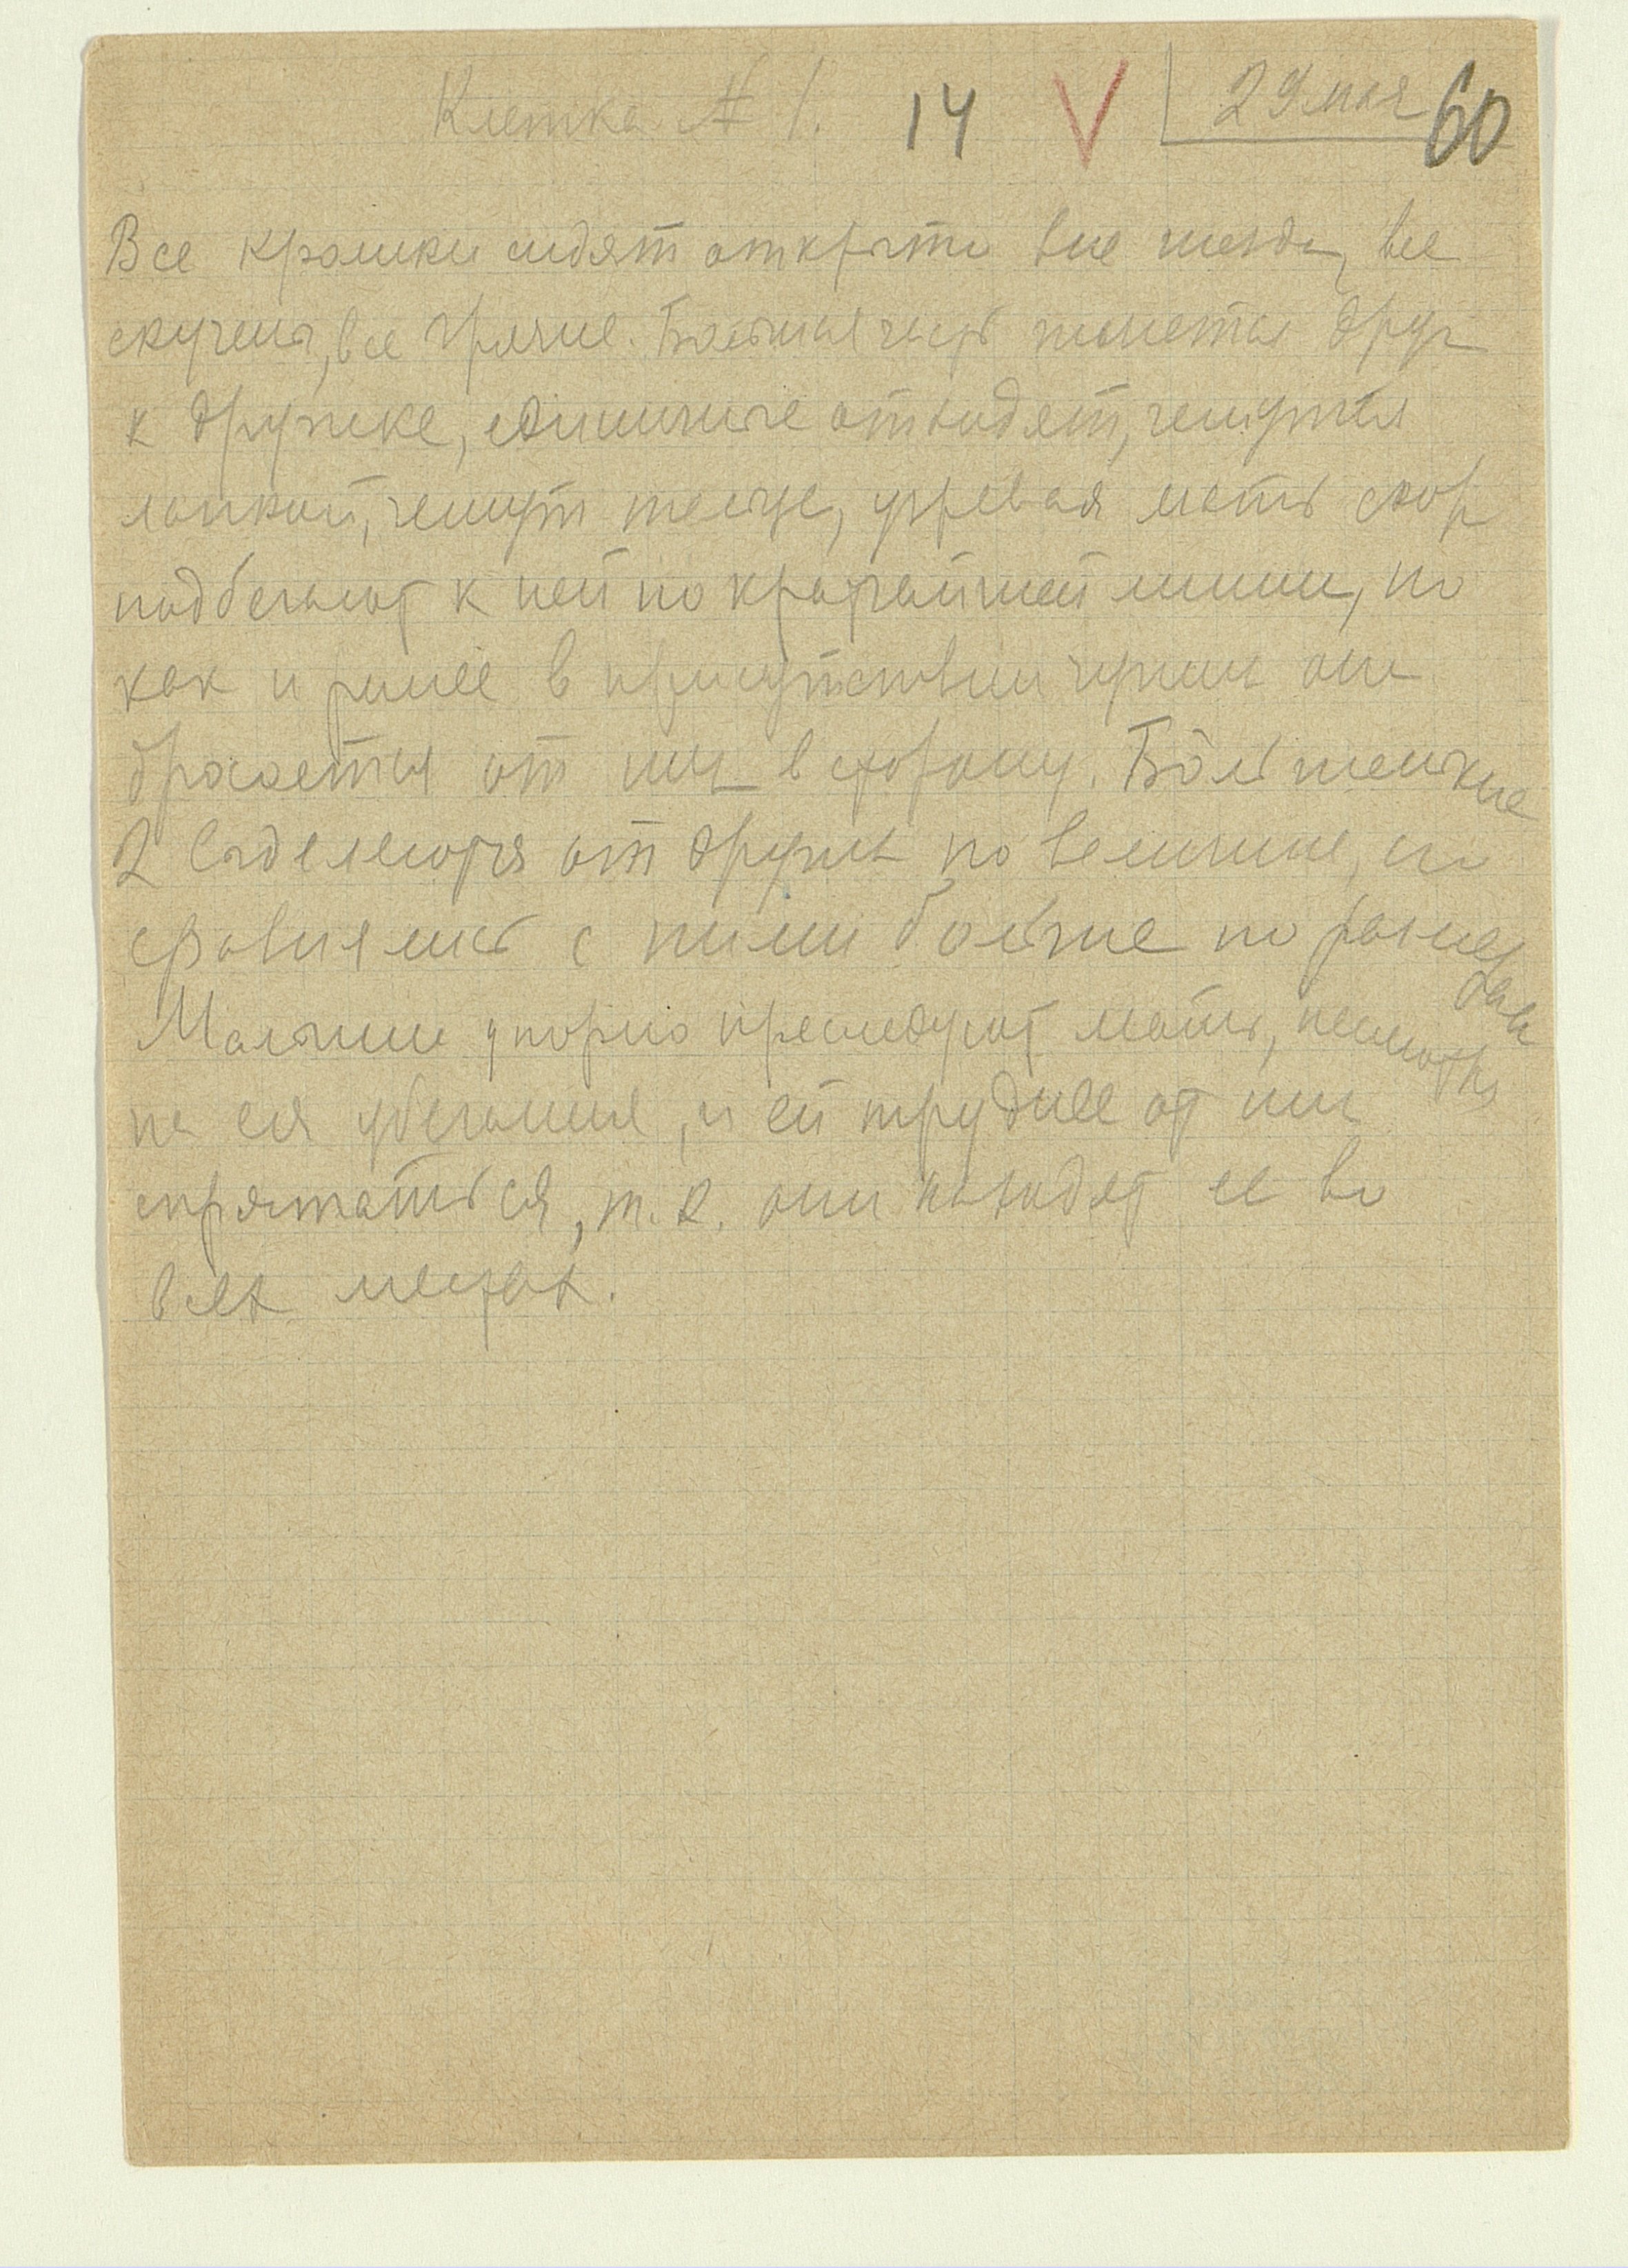 Клетка № 1. 14 V 29 мая 60
Все крошки сидят открыто вне гнезда, все
скучены, все грязные. Большая часть жмется друг
к дружке, единичные отходят, чешутся
лапкой, чешут тельце, узревая мать скор
подбегают к ней по кратчайшей линии, но
как и ранее в присутствии чужих они
бросаются от них в сторону. Большенькие
2 выделяются от других по величине, но
сравнялись с ними более по размерам
Малыши упорно преследуют мать, несмотря
на ея убегания, и ей труднее от них
спрятаться, т.к. они находят ее во
всех местах.